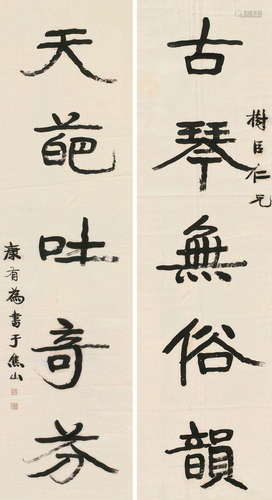 樹臣仁兄
古琴無俗韻
天葩吐奇芬
康有為書于焦山